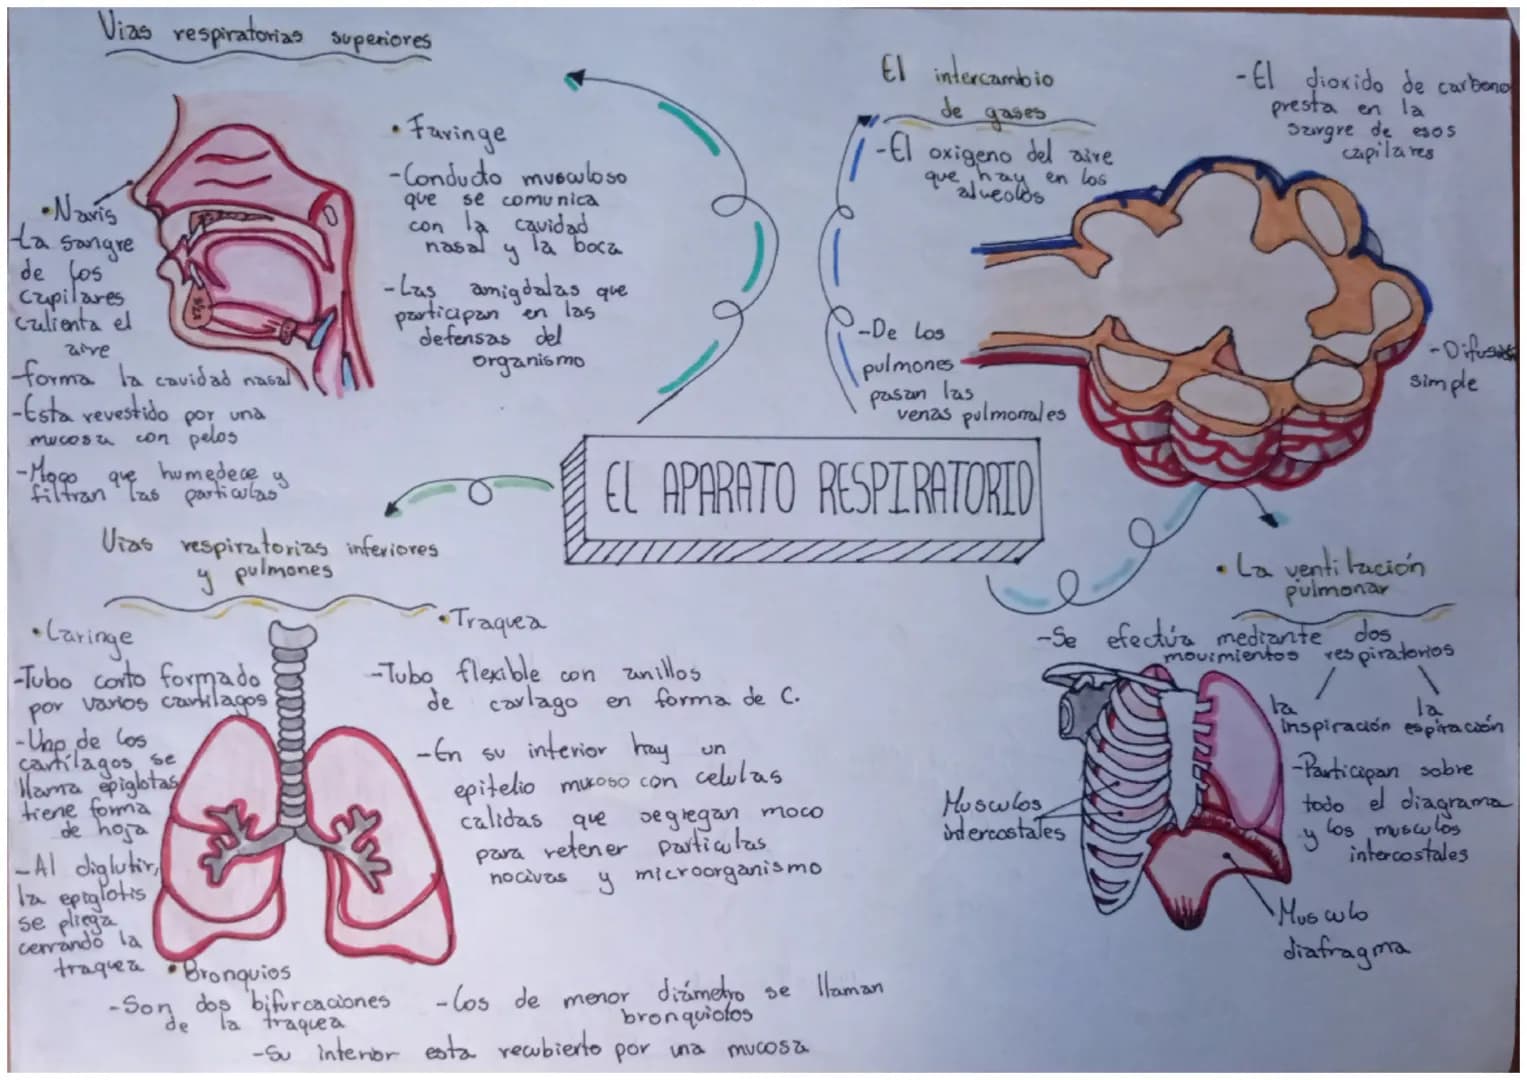 Vias respiratorias superiores
• Naris
-La sangre
de los
capilares
calienta el
aire
-forma la cavidad nasal
-Esta revestido por una
mucosa con pelos
-Moco que humedece y
filtran las particulas
• Faringe
-Conducto musculoso
que se comunica
con la cavidad
nasal y la boca
-Las amigdalas que
participan en las
defensas del
organismo
El intercambio
de gases
-El oxigeno del aire
que hay en los
alveolos
-De los
pulmones
pasan las
venas pulmonales
-El dioxido de carbono
presta en la
sangre de esos
capilares
simple
EL APARATO RESPIRATORIO
Vias respiratorias inferiores
y pulmones
• Laringe
-Tubo corto formado
por varios cartilagos
-Uno de los
cartilagos se
llama epiglotas
tiene forma
de hoja
-Al diglutir,
la epiglotis
se pliega
cerrando la
traquea
• Traquea
-Tubo flexible con anillos
de carlago en forma de C.
-En su interior hay un
epitelio mucoso con celulas
calidas que segregan moco
para retener particulas
nocivas y microorganismo
• Bronquios
-Son dos bifurcaciones
de la traquea
-Los de menor diámetro se llaman
bronquiolos
-Su interior esta recubierto por una mucosa
• La ventilación
pulmonar
-Se efectúa mediante dos
movimientos respiratorios
la
inspiración
la
espiración
-Participan sobre
todo el diagrama
y los musculos
intercostales
Musculos
intercostales
Musculo
diafragma